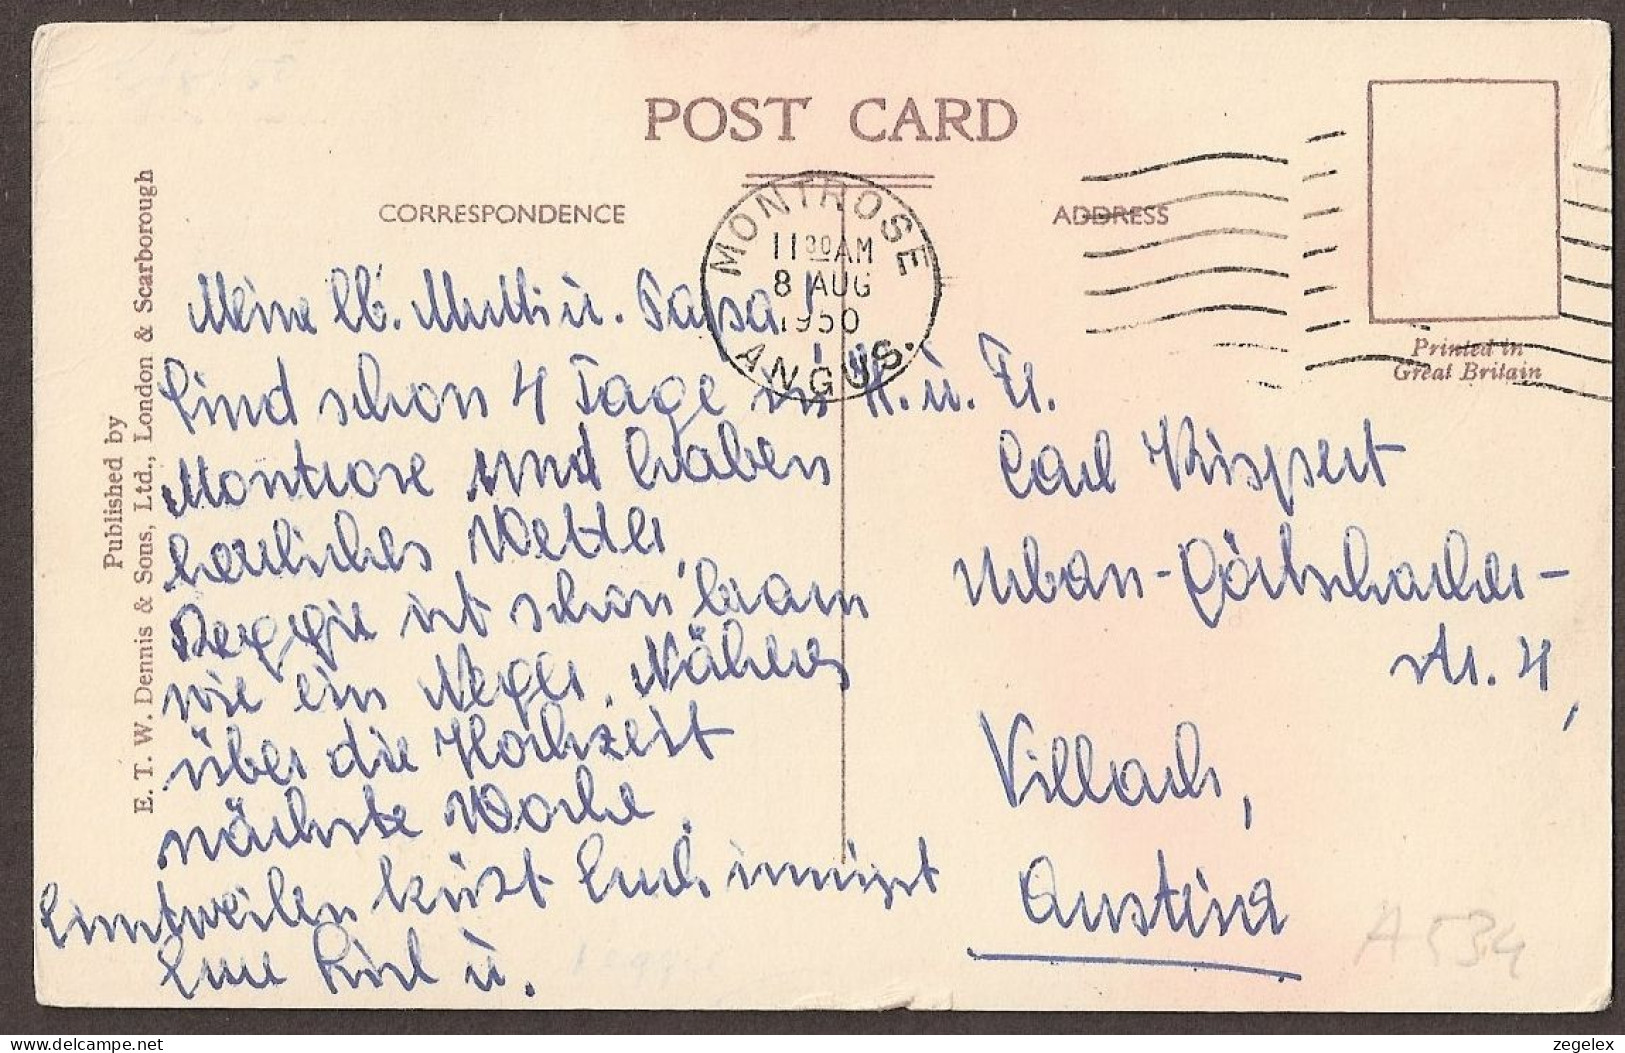 POST CARD
CORRESPONDENCE
ADDRESS
MONTROSE
11 30 AM
8 AUG
1950
ANGUS.
Printed in
Great Britain
Published by
E. T. W. Dennis & Sons, Ltd., London & Scarborough
Meine lb. Mutti u. Papa!
Sind schon 4 Tage in
Montrose und haben
herrliches Wetter,
Reggie ist schon braun
wie ein Neger. Näheres
über die Hochzeit
nächste Woche.
Einstweilen küsst Euch innigst
Eure u.
H. u. Fr.
Carl Rispert
Urban-Görtschacher-
Str. 4,
Villach,
Austria
A 534
delcampe.net
zegelex